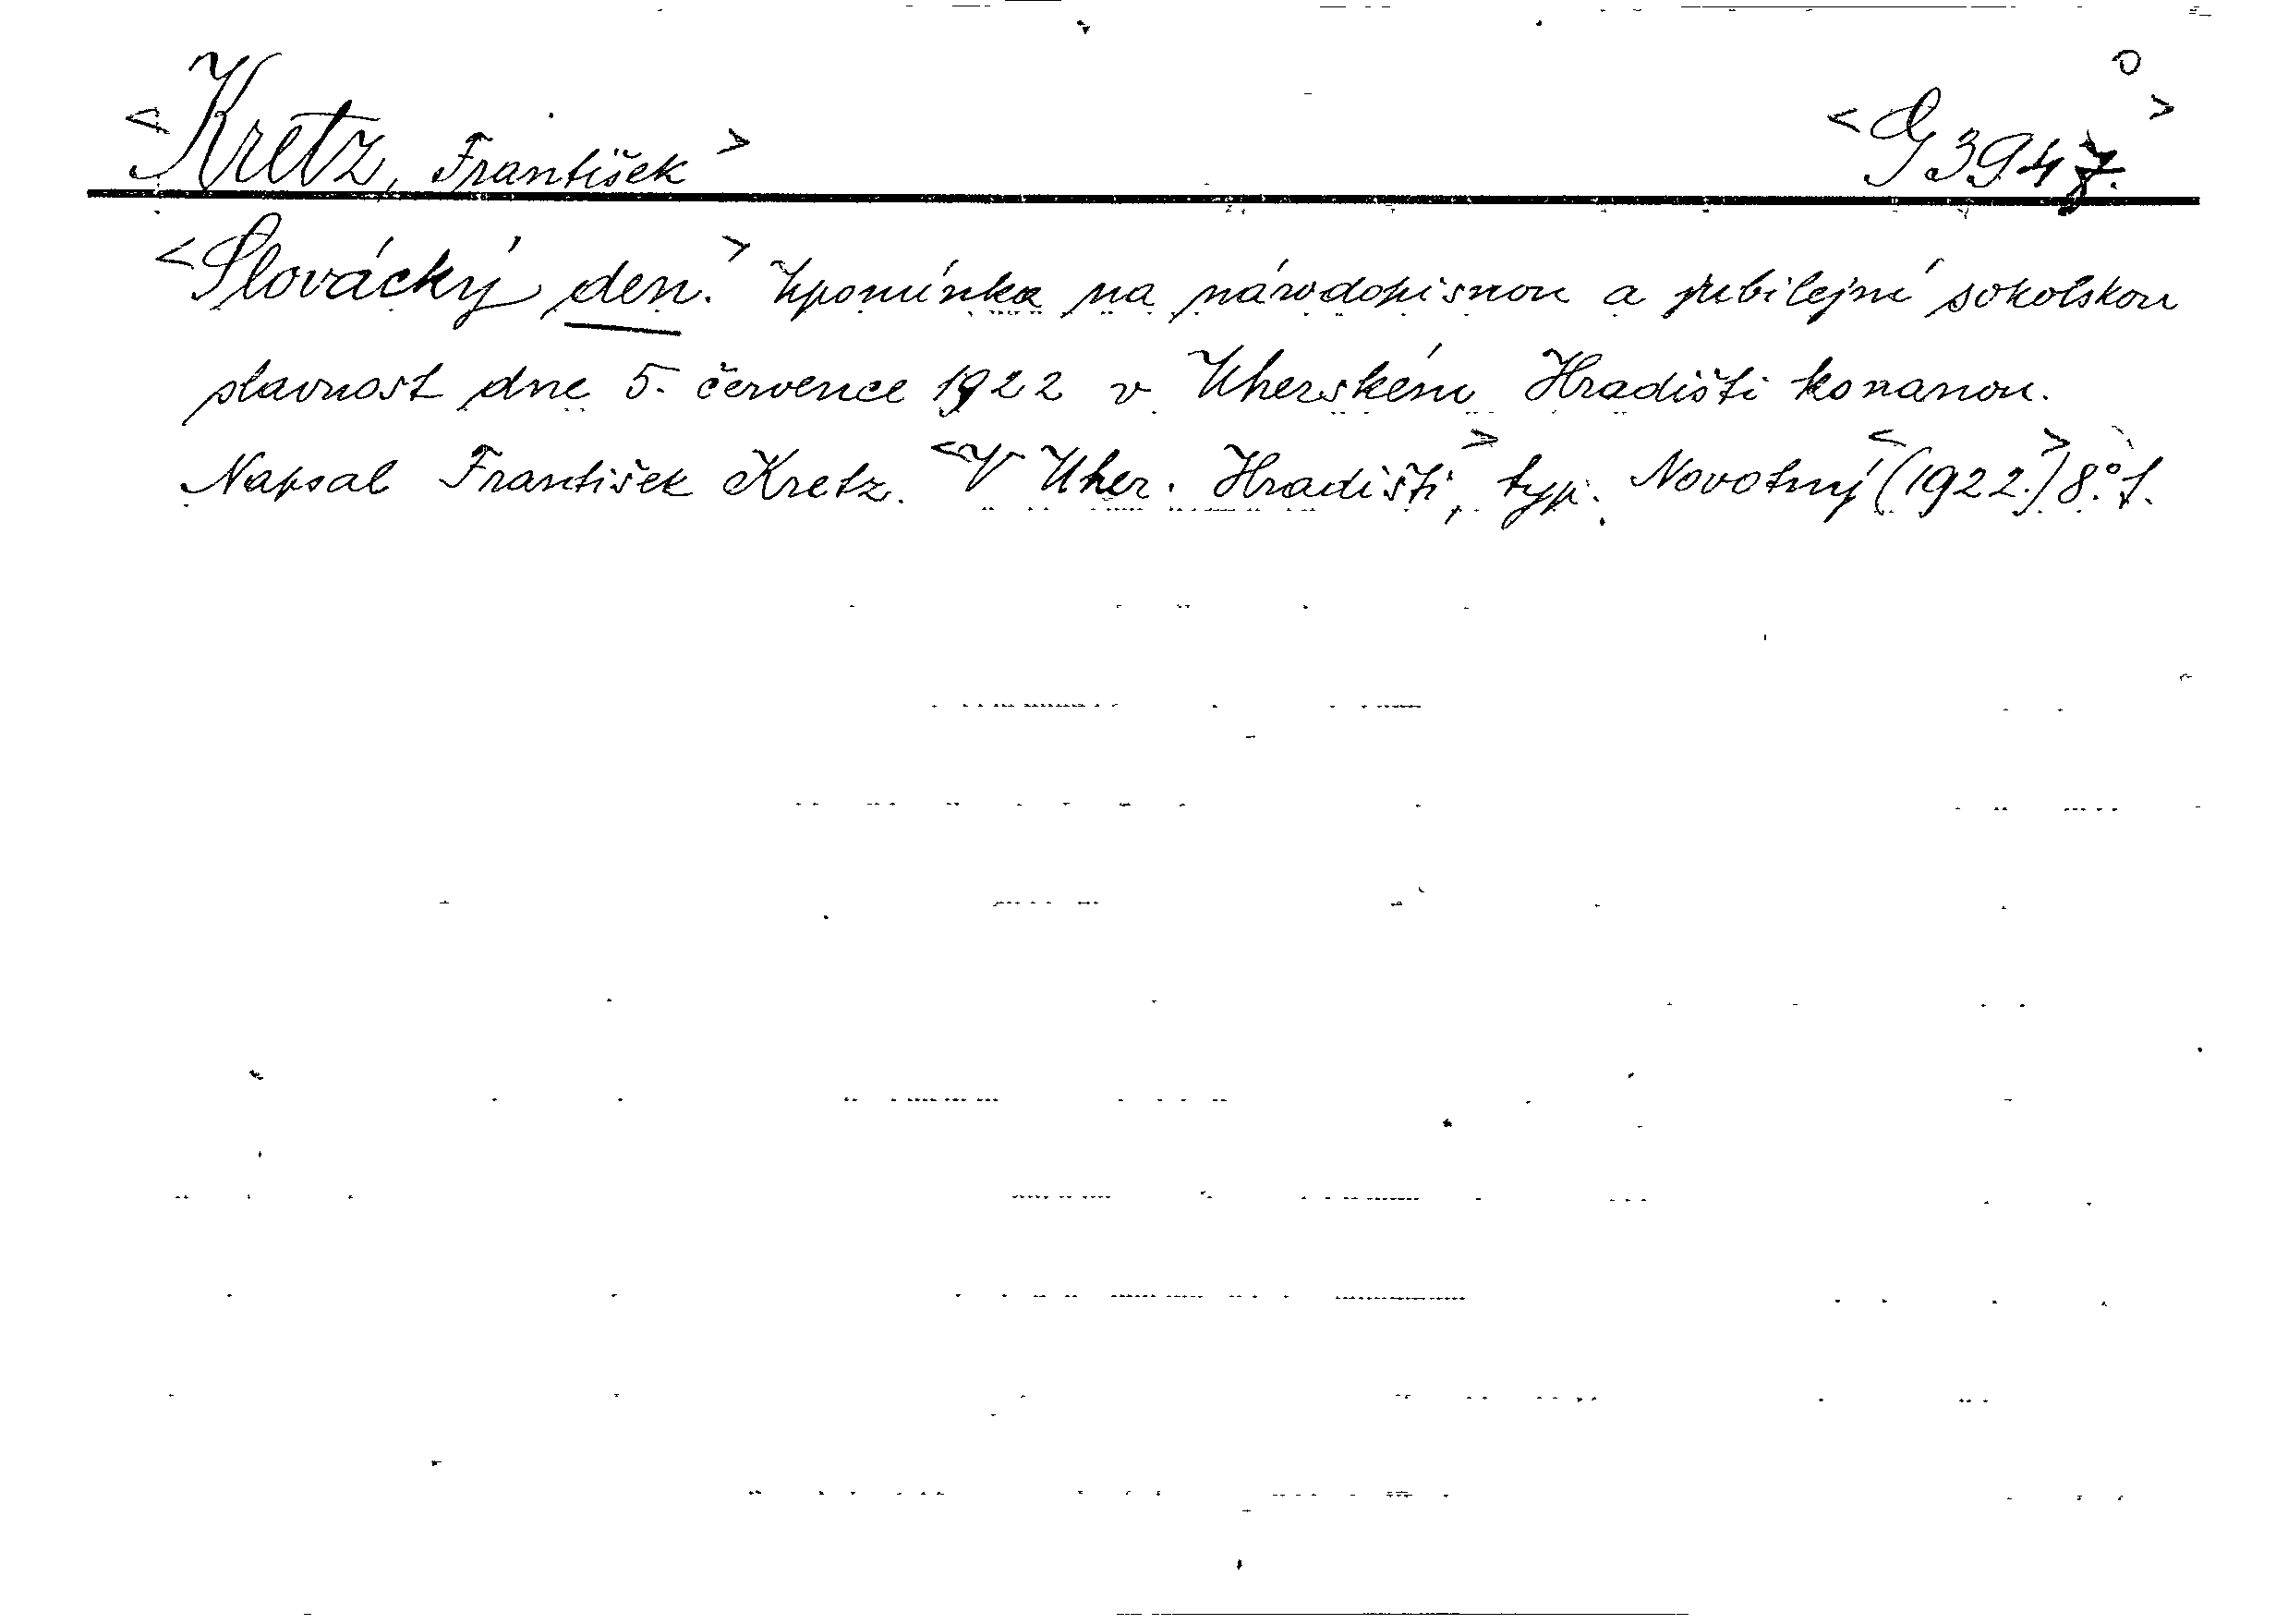 <Kretz, František> <G 3947.>
<Slovácký den.> Upomínka na národopisnou a jubilejní sokolskou
slavnost dne 5. července 1922 v Uherském Hradišti konanou.
Napsal František Kretz. <V Uher. Hradišti,> typ. Novotný <(1922.)> 8.° f.